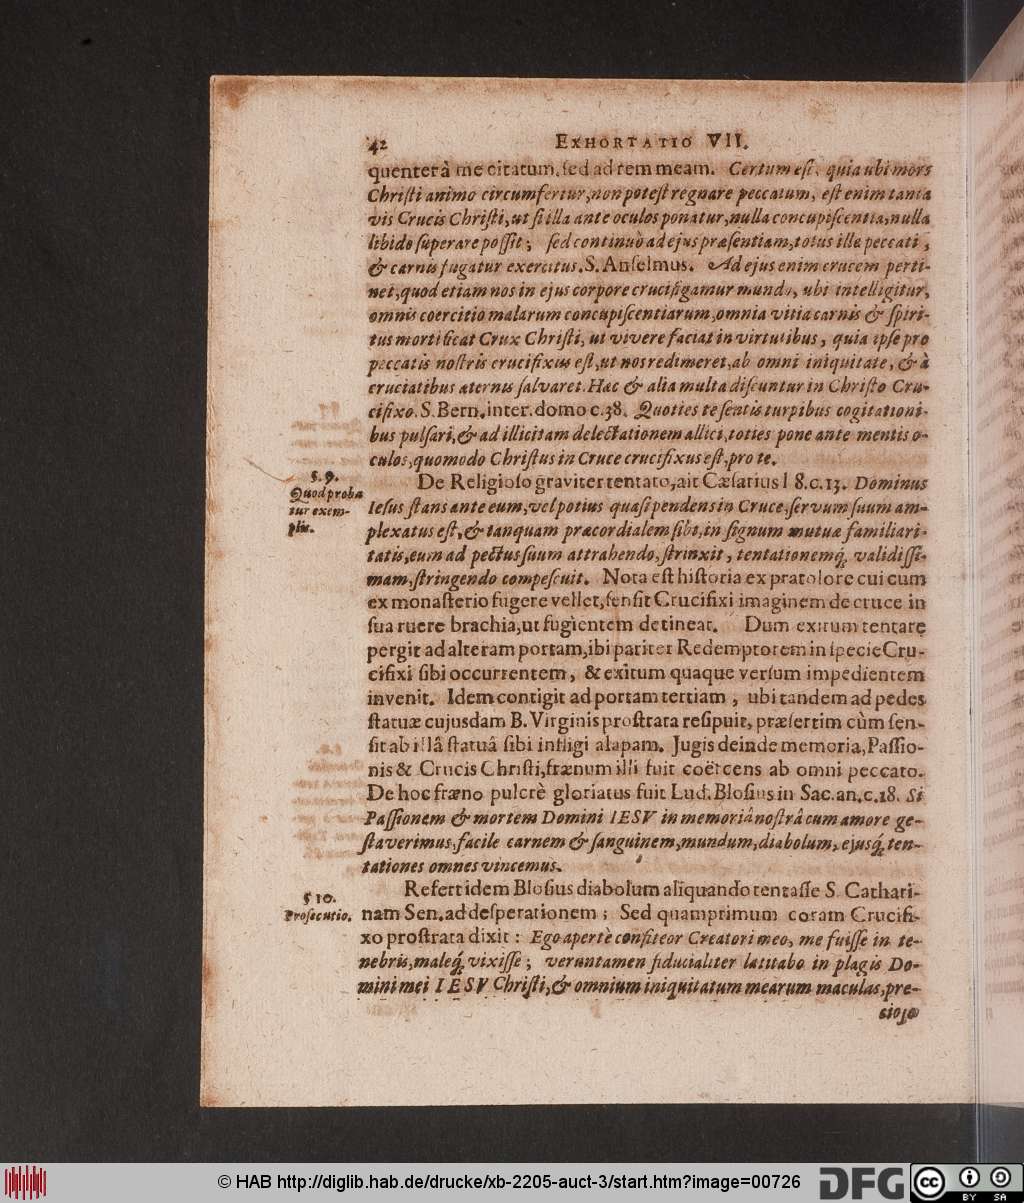 42 EXHORTATIO VII.
quenter à me citatum, sed ad rem meam. Certum est, quia ubi mors
Christi animo circumfertur, non potest regnare peccatum, est enim tanta
vis Crucis Christi, ut si illa ante oculos ponatur, nulla concupiscentia, nulla
libido superare possit; sed continuò ad ejus præsentiam, totus ille peccati,
& carnis fugatur exercitus. S. Anselmus. Ad ejus enim crucem perti-
net, quod etiam nos in ejus corpore crucifigamur mundo, ubi intelligitur,
omnis coercitio malarum concupiscentiarum, omnia vitia carnis & spiri-
tus mortificat Crux Christi, ut vivere faciat in virtutibus, quia ipse pro
peccatis nostris crucifixus est, ut nos redimeret, ab omni iniquitate, & à
cruciatibus æternis salvaret. Hac & alia multa discuntur in Christo Cru-
cifixo. S. Bern. inter. domo c. 38. Quoties te sentis turpibus cogitationi-
bus pulsari, & ad illicitam delectationem allici, toties pone ante mentis o-
culos, quomodo Christus in Cruce crucifixus est, pro te.
§. 9.
Quod proba
tur exem-
plis.
De Religioso graviter tentato, ait Cæsarius l 8. c. 13. Dominus
Iesus stans ante eum, vel potius quasi pendens in Cruce, servum suum am-
plexatus est, & tanquam præcordialem sibi, in signum mutuæ familiari-
tatis, eum ad pectus suum attrahendo, strinxit, tentationemq́; validissi-
mam, stringendo compescuit. Nota est historia ex pratolore cui cum
ex monasterio fugere vellet, sensit Crucifixi imaginem de cruce in
sua ruere brachia, ut fugientem detineat. Dum exitum tentare
pergit ad alteram portam, ibi pariter Redemptorem in specie Cru-
cifixi sibi occurrentem, & exitum quaque versum impedientem
invenit. Idem contigit ad portam tertiam, ubi tandem ad pedes
statuæ cujusdam B. Virginis prostrata resipuit, præsertim cùm sen-
sit ab illâ statuâ sibi infligi alapam. Jugis deinde memoria, Passio-
nis & Crucis Christi, frænum illi fuit coërcens ab omni peccato.
De hoc fræno pulcrè gloriatus fuit Lud. Blosius in Sac. an. c. 18. Si
Passionem & mortem Domini IESV in memoriâ nostrâ cum amore ge-
staverimus, facile carnem & sanguinem, mundum, diabolum, ejusq́; ten-
tationes omnes vincemus.
§ 10.
Prosecutio.
Refert idem Blosius diabolum aliquando tentasse S. Cathari-
nam Sen. ad desperationem; Sed quamprimum coram Crucifi-
xo prostrata dixit: Ego apertè confiteor Creatori meo, me fuisse in te-
nebris, maleq́; vixisse; veruntamen fiducialiter latitabo in plagis Do-
mini mei IESV Christi, & omnium iniquitatum mearum maculas, pre-
cioso
© HAB http://diglib.hab.de/drucke/xb-2205-auct-3/start.htm?image=00726
DFG
cc BY SA